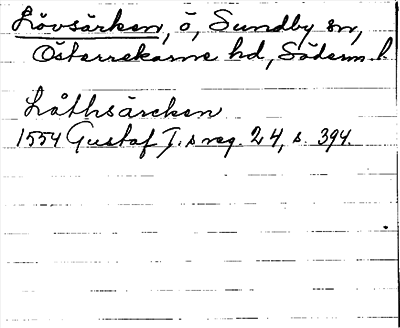 Lövsärken, ö, Sundby sn,
Österrekarne hd, Söderm. l.
Låthsärcken
1554 Gustaf I.s reg. 24, s. 394.